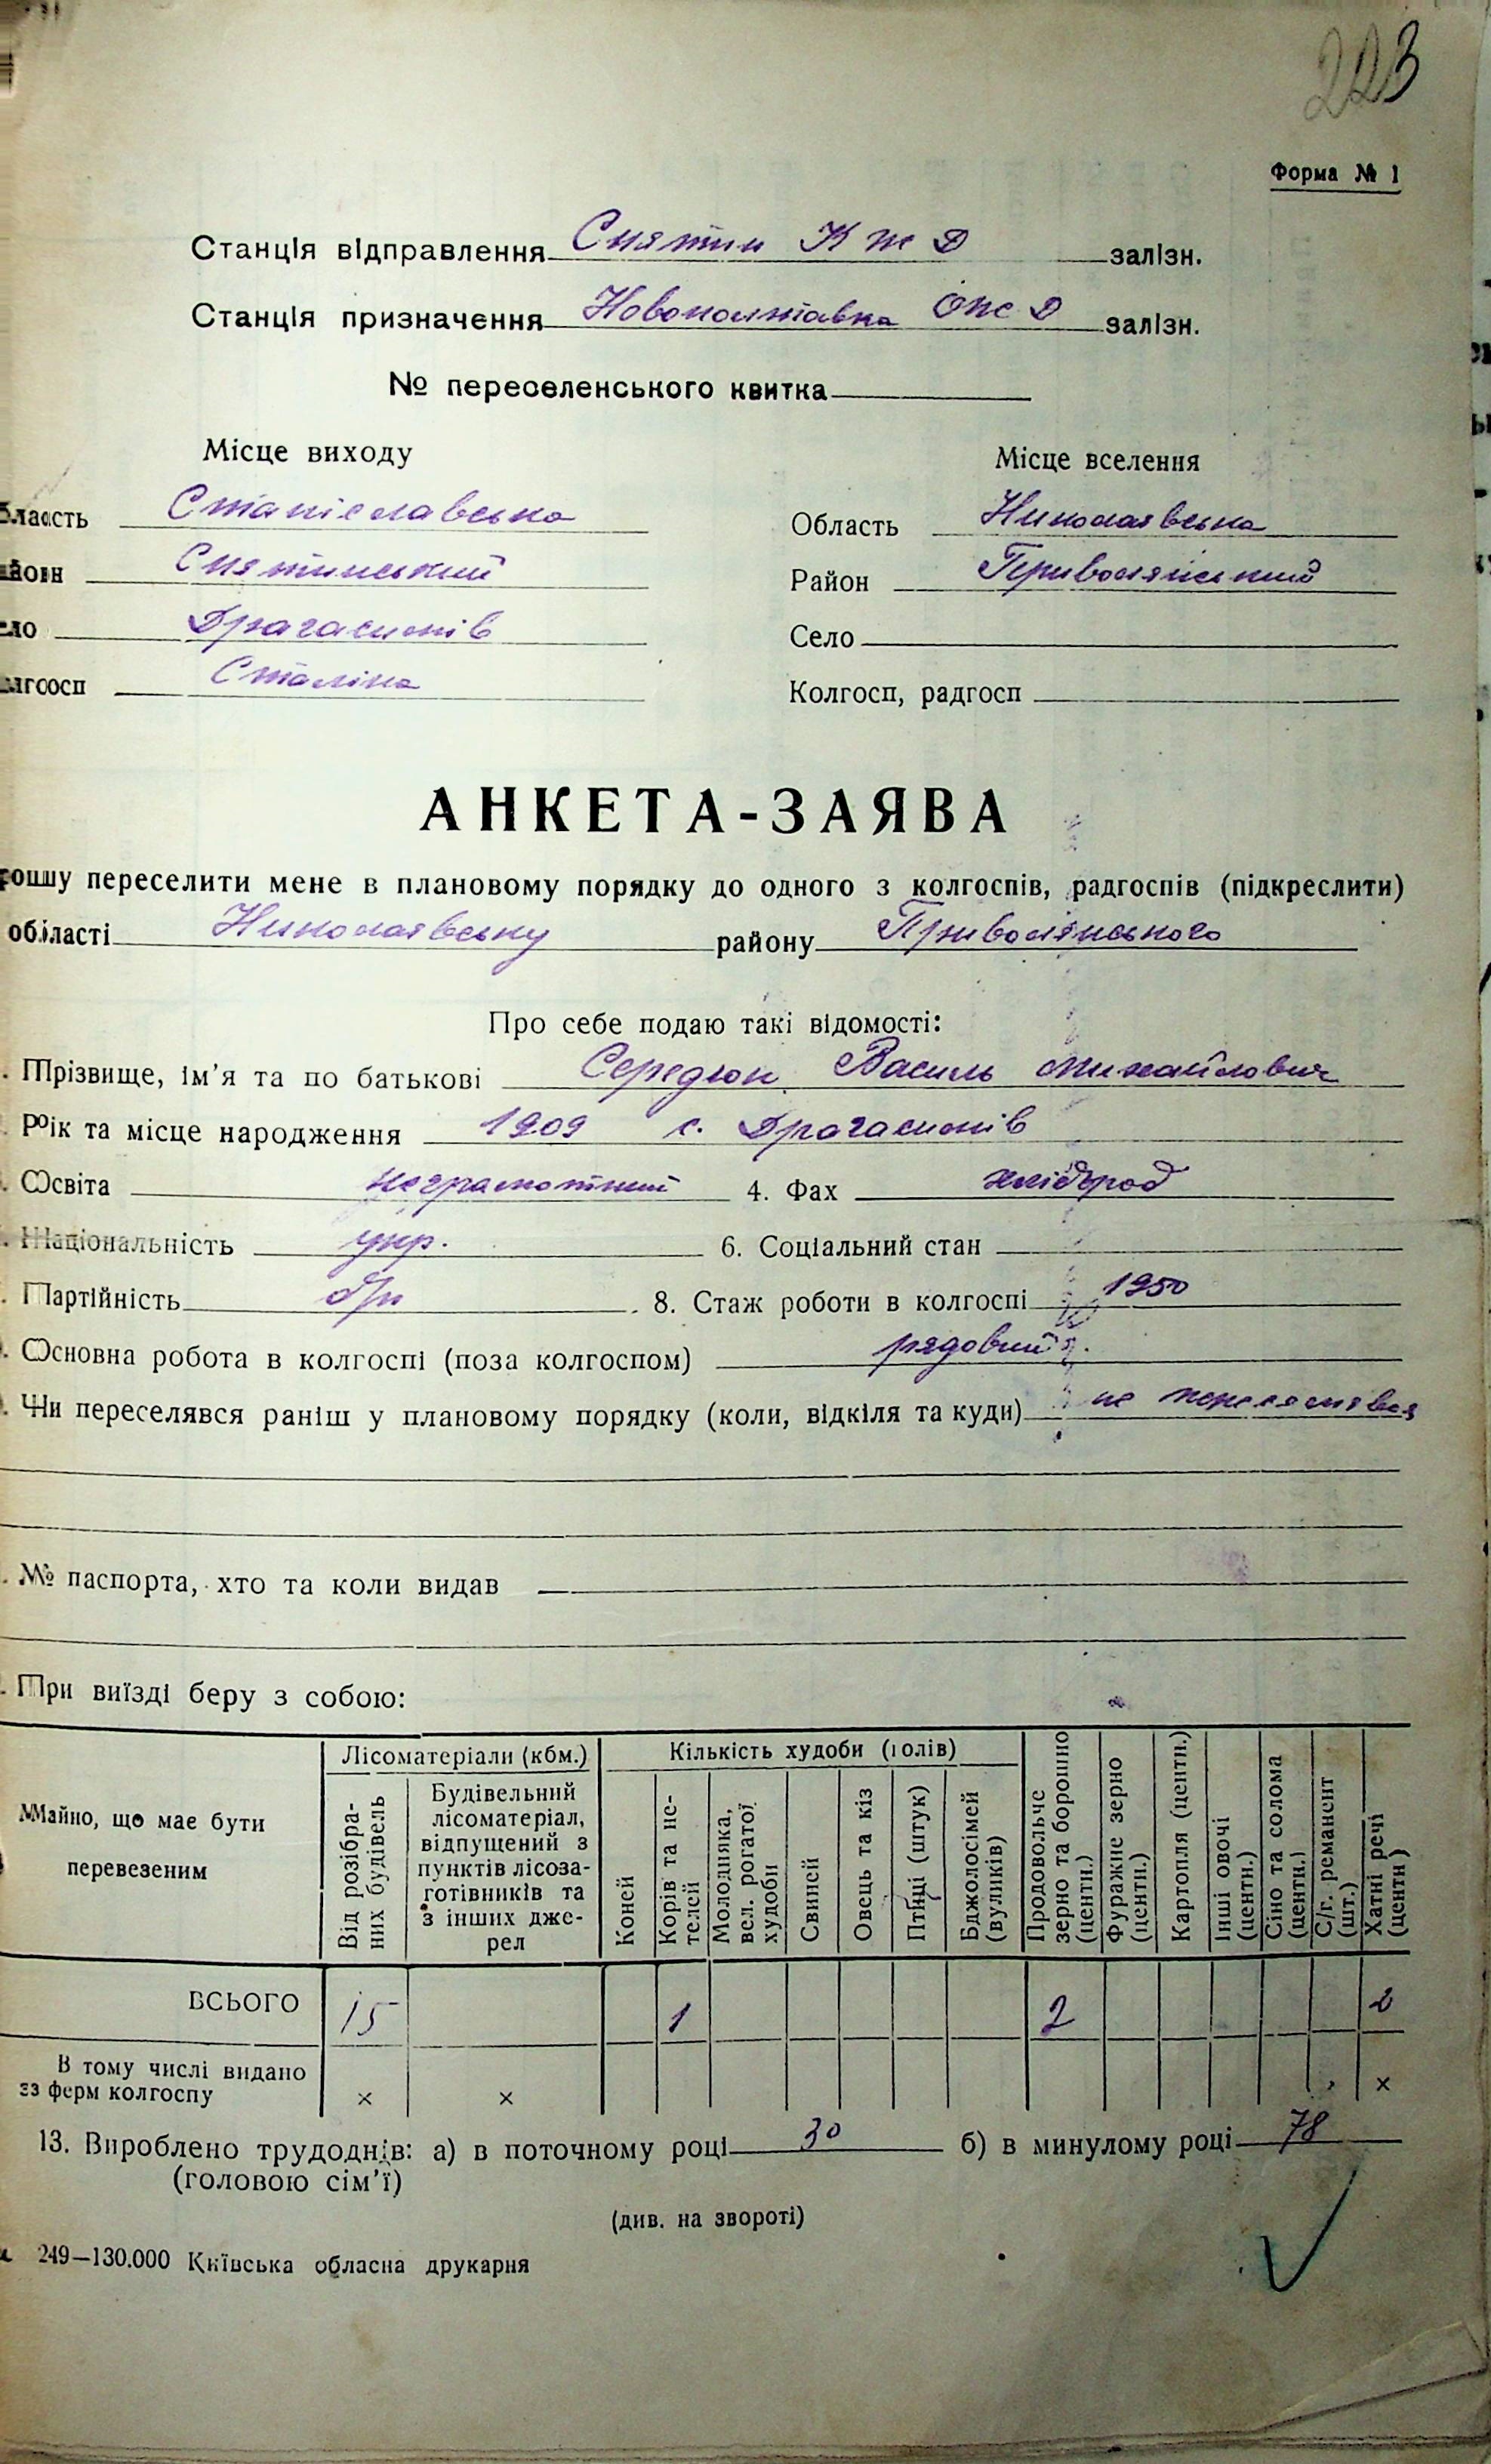 223
Форма № 1
Станція відправлення Снятин К ж Д залізн.
Станція призначення Новополтавка Ож Д залізн.
№ переселенського квитка
Місце виходу Місце вселення
бласть Станіславська Область Николаївська
айон Снятинський Район Привольянський
ело Драгасимів Село
лгосп Сталіна Колгосп, радгосп
АНКЕТА-ЗАЯВА
рошу переселити мене в плановому порядку до одного з колгоспів, радгоспів (підкреслити)
області Николаївську району Привольянського
Про себе подаю такі відомості:
. Прізвище, ім'я та по батькові Середюк Василь Михайлович
. Рік та місце народження 1909 с. Драгасимів
. Освіта неграмотний 4. Фах хлібороб
. Національність укр. 6. Соціальний стан
. Партійність б/п 8. Стаж роботи в колгоспі 1950
. Основна робота в колгоспі (поза колгоспом) рядовий
. Чи переселявся раніш у плановому порядку (коли, відкіля та куди) не переселявся
. № паспорта, хто та коли видав
. При виїзді беру з собою:
Майно, що має бути перевезеним
Лісоматеріали (кбм.)
Від розібраних будівель
Будівельний
лісоматеріал,
відпущений з
пунктів лісоза-
готівників та
з інших дже-
рел
Кількість худоби (голів)
Коней
Корів та не-
телей
Молодняка,
вел. рогатої
худоби
Свиней
Овець та кіз
Птиці (штук)
Бджолосімей
(вуликів)
Продовольче
зерно та борошно
(центн.)
Фуражне зерно
(центн.)
Картопля (центн.)
Інші овочі
(центн.)
Сіно та солома
(центн.)
С/г. реманент
(шт.)
Хатні речі
(центн)
ВСЬОГО 15 1 2 2
В тому числі видано
з ферм колгоспу × × ×
13. Вироблено трудоднів: а) в поточному році 30 б) в минулому році 78
(головою сім'ї)
(див. на звороті)
249—130.000 Київська обласна друкарня